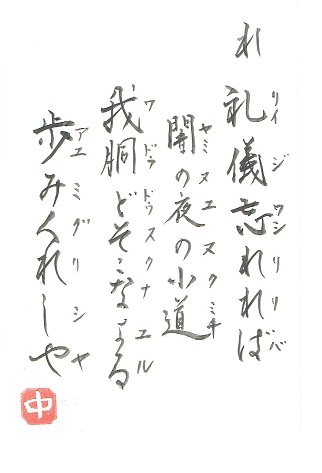 れ
リイジワシリリバ
礼儀忘れれば
ヤミヌエヌクミチ
闇の夜の小道
ワドゥドゥスクナエル
我胴どそこなよる
アエミグリシヤ
歩みくれしや
中